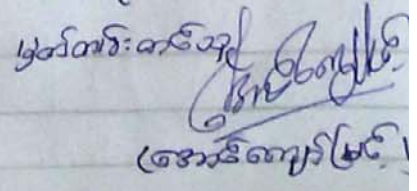 မှတ်တမ်းတင်သူ
(အောင်ကျော်မြင့်)